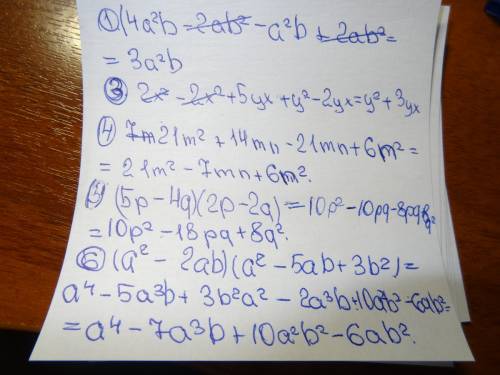 ① (4a²b - 2ab² - a²b + 2ab² =
= 3a²b
③ 2x² - 2x² + 5yx + y² - 2yx = y² + 3yx
④ 7m 21m² + 14mn - 21mn + 6m² =
= 21m² - 7mn + 6m².
(5p - 4q)(2p - 2q) = 10p² - 10pq - 8pq + 8q²
= 10p² - 18pq + 8q².
⑥ (a² - 2ab)(a² - 5ab + 3b²) =
a⁴ - 5a³b + 3b²a² - 2a³b + 10a²b² - 6ab² =
= a⁴ - 7a³b + 10a²b² - 6ab².